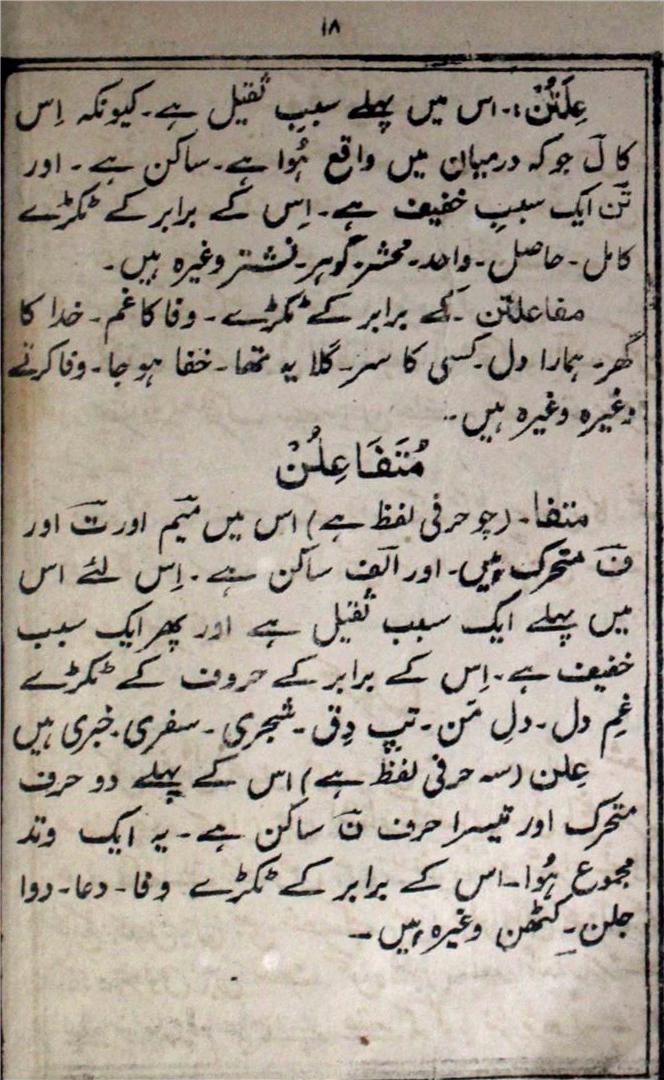 ۱۸
عِلَتُنْ:۔ اس میں پہلے سببِ ثقیل ہے۔ کیونکہ اِس
کا لَ جو کہ درمیان میں واقع ہُوا ہے۔ ساکن ہے۔ اور
تن ایک سببِ خفیف ہے۔ اِس کے برابر کے ٹکڑے
کامل۔ حاصل۔ واحد۔ محشر۔ گوہر۔ نشتر وغیرہ ہیں۔
مفاعلتن۔ کے برابر کے ٹکڑے۔ وفا کا غم۔ خدا کا
گھر۔ ہمارا دل۔ کسی کا سر۔ گلا یہ تھا۔ خفا ہو جا۔ وفا کرتے
وغیرہ وغیرہ ہیں۔۔
مُتَفَاعِلُنْ
متفا۔ (چو حرفی لفظ ہے) اس میں میم اور ت اور
ف متحرک ہیں۔ اور الف ساکن ہے۔ اِس لئے اس
میں پہلے ایک سبب ثقیل ہے اور پھر ایک سبب
خفیف ہے۔ اِس کے برابر کے حروف کے ٹکڑے
غمِ دل۔ دلِ من۔ تپِ دِق۔ شجری۔ سفری۔ خبری ہیں
عِلن (سہ حرفی لفظ ہے) اس کے پہلے دو حرف
متحرک اور تیسرا حرف ن ساکن ہے۔ یہ ایک وتد
مجموع ہُوا۔ اس کے برابر کے ٹکڑے وفا۔ دعا۔ دوا
جلن۔ کٹھن وغیرہ ہیں۔